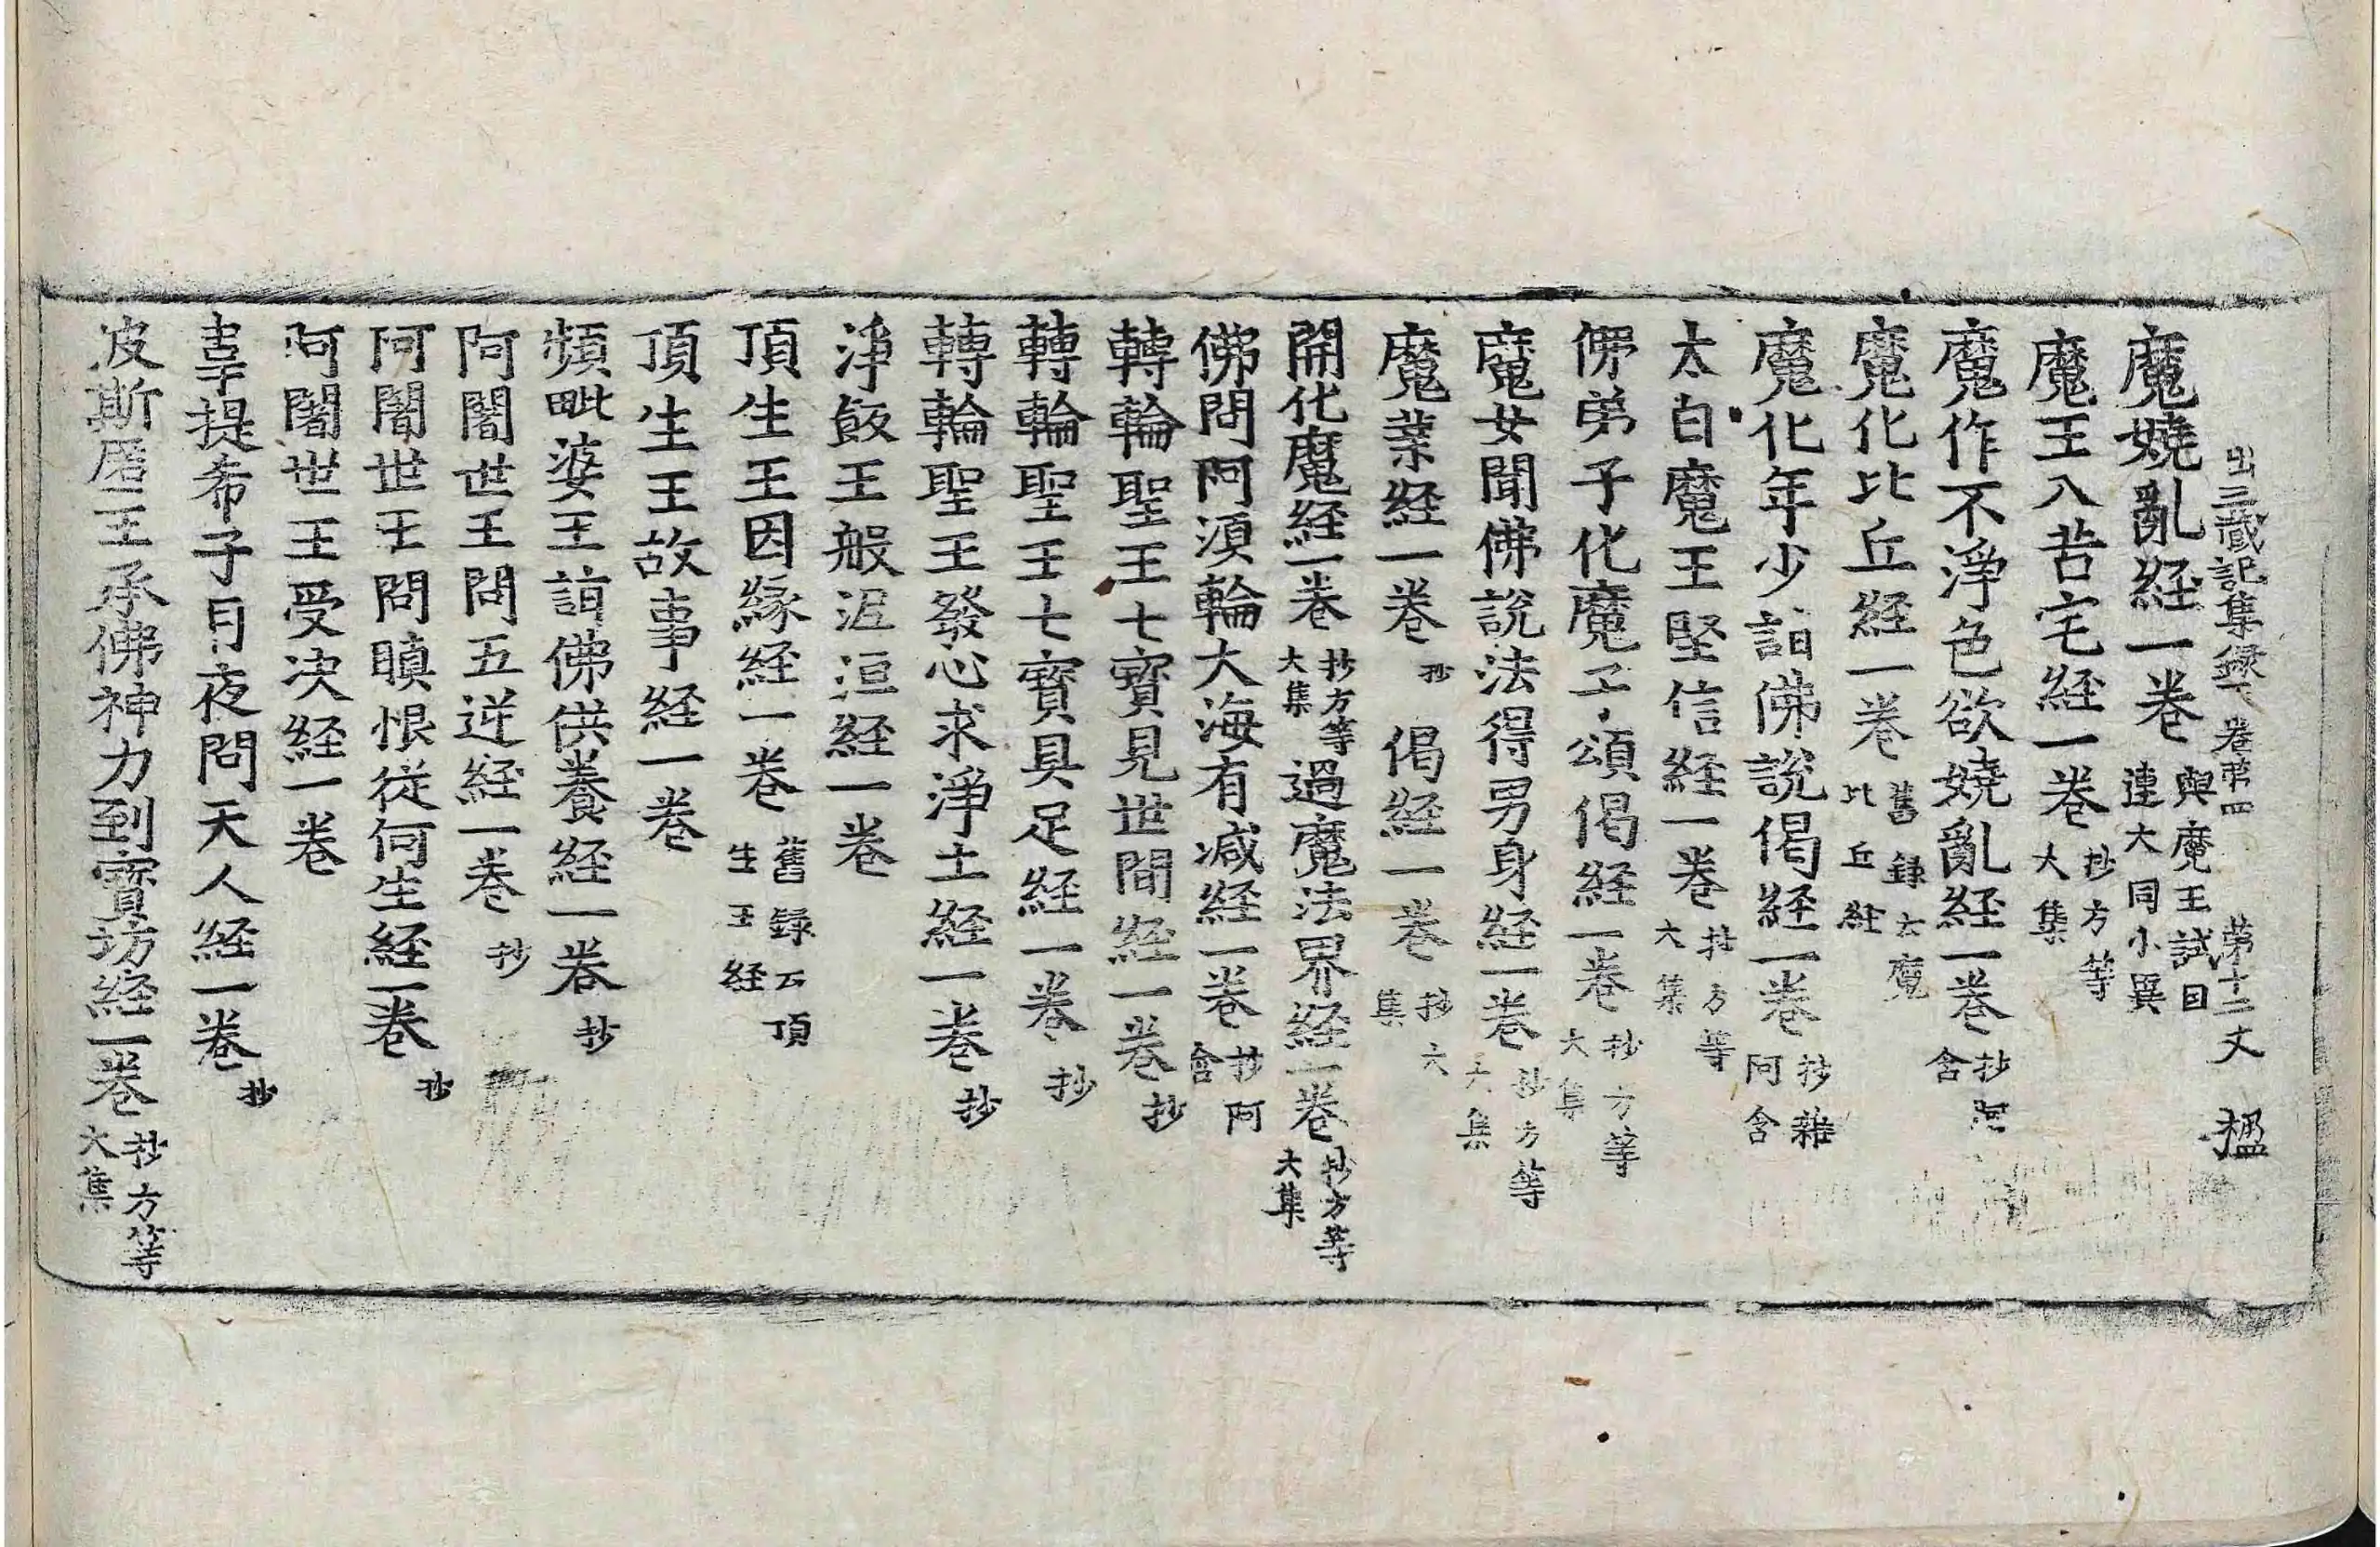 出三藏記集錄下 卷第四 第十二丈 楹
魔嬈亂経一卷 與魔王試目連大同小異
魔王入苦宅経一卷 抄方等大集
魔作不淨色欲嬈亂経一卷 抄阿含
魔化比丘経一卷 舊録云魔比丘経
魔化年少詣佛說偈経一卷 抄雜阿含
太白魔王堅信経一卷 抄方等大集
佛弟子化魔子頌偈経一卷 抄方等大集
魔女聞佛說法得男身経一卷 抄方等大集
魔業経一卷 抄 偈経一卷 抄大集
開化魔経一卷 抄方等大集 過魔法界経一卷 抄方等大集
佛問阿須輪大海有减経一卷 抄阿含
轉輪聖王七寶見世間経一卷 抄
轉輪聖王七寶具足経一卷 抄
轉輪聖王發心求淨土経一卷 抄
淨飯王般泥洹経一卷
頂生王因緣経一卷 舊録云頂生王経
頂生王故事経一卷
頻毗婆王詣佛供養経一卷 抄
阿闍世王問五逆経一卷 抄
阿闍世王問瞋恨従何生経一卷 抄
阿闍世王受决経一卷
韋提希子月夜問天人経一卷 抄
波斯匿王承佛神力到寶坊経一卷 抄方等大集